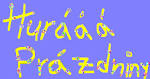 Hurááá
Prázdniny